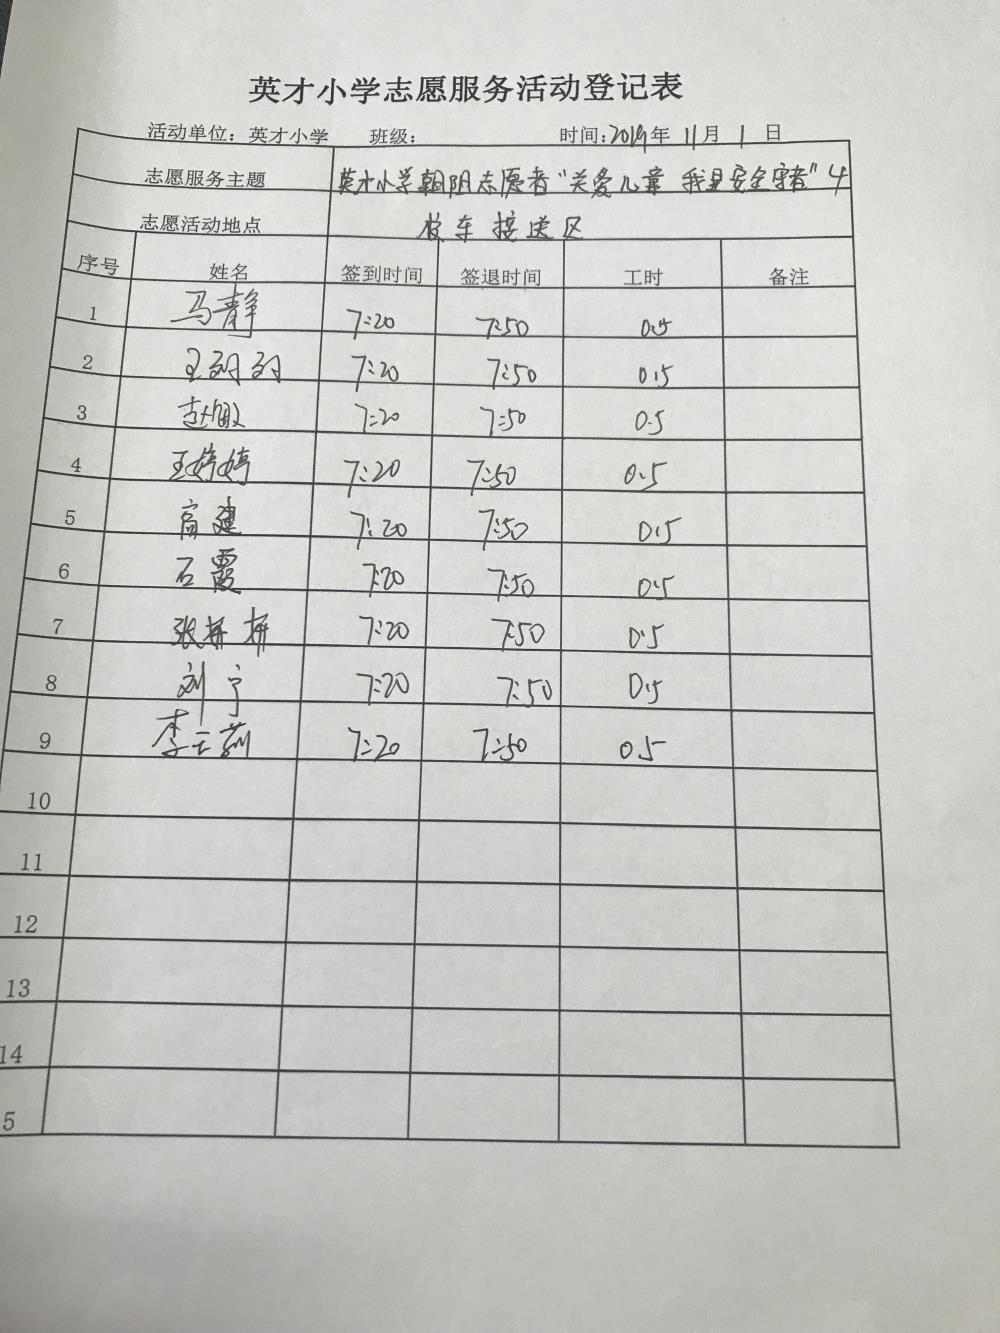 英才小学志愿服务活动登记表
活动单位：英才小学 班级： 时间：2019年 11月 1 日
志愿服务主题 英才小学朝阳志愿者“关爱儿童 我是安全守者”4
志愿活动地点 校车接送区
序号 姓名 签到时间 签退时间 工时 备注
1 马静 7:20 7:50 0.5
2 王 7:20 7:50 0.5
3 7:20 7:50 0.5
4 王婷婷 7:20 7:50 0.5
5 高建 7:20 7:50 0.5
6 石霞 7:20 7:50 0.5
7 张 7:20 7:50 0.5
8 刘宁 7:20 7:50 0.5
9 李云 7:20 7:50 0.5
10
11
12
13
14
5